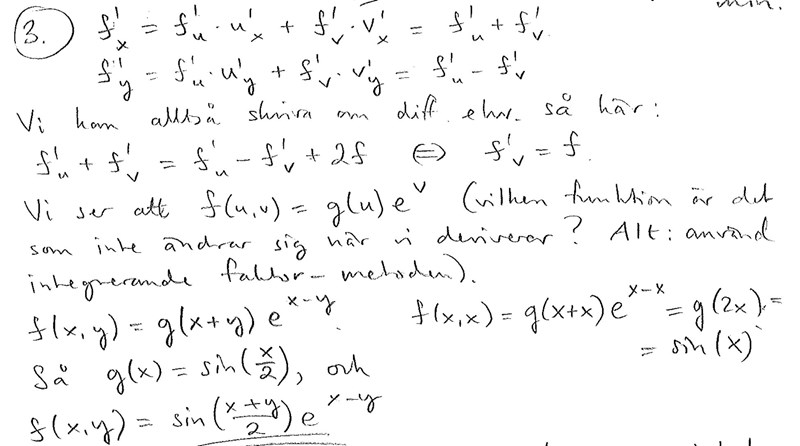 min.
3. f'_x = f'_u · u'_x + f'_v · v'_x = f'_u + f'_v
f'_y = f'_u · u'_y + f'_v · v'_y = f'_u - f'_v
Vi kan alltså skriva om diff. ekv. så här:
f'_u + f'_v = f'_u - f'_v + 2f ⇔ f'_v = f.
Vi ser att f(u,v) = g(u) e^v (vilken funktion är det
som inte ändrar sig när vi deriverar? Alt: använd
integrerande faktor-metoden).
f(x,y) = g(x+y) e^{x-y}. f(x,x) = g(x+x) e^{x-x} = g(2x) =
= sin(x)
Så g(x) = sin(x/2), och
f(x,y) = sin((x+y)/2) e^{x-y}